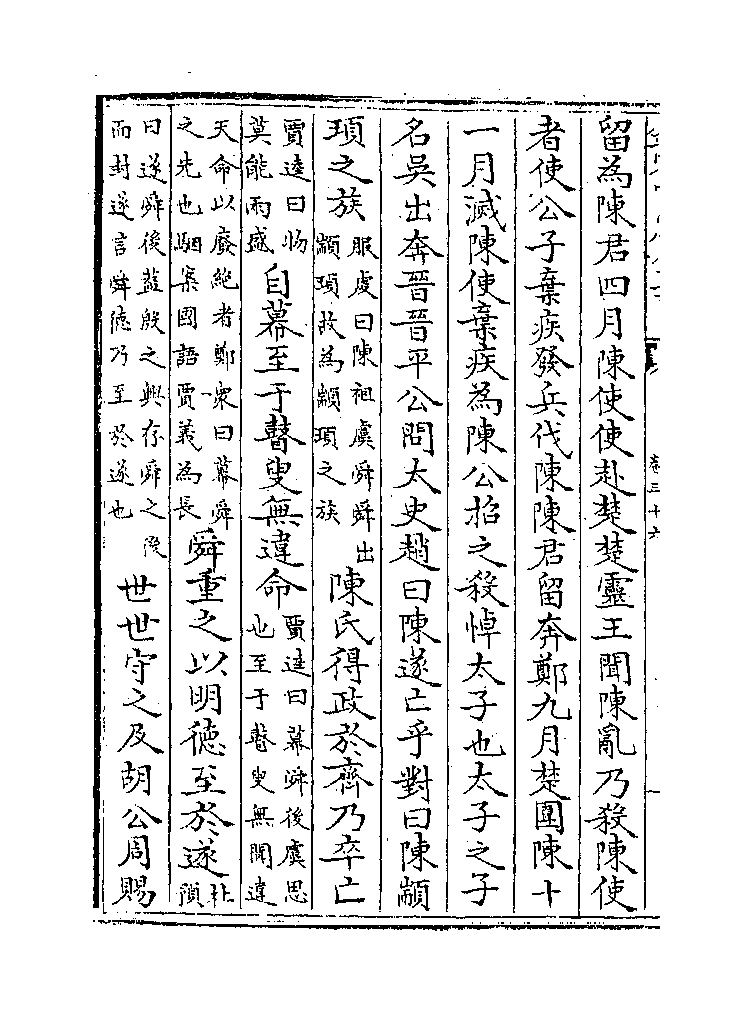 卷三十六
留為陳君四月陳使使赴楚楚靈王聞陳亂乃殺陳使
者使公子棄疾發兵伐陳陳君留奔鄭九月楚圍陳十
一月滅陳使棄疾為陳公招之殺悼太子也太子之子
名吳出奔晉晉平公問太史趙曰陳遂亡乎對曰陳顓
頊之族服虔曰陳祖虞舜舜出顓頊故為顓頊之族陳氏得政於齊乃卒亡
賈逵曰物莫能兩盛自幕至于瞽叟無違命賈逵曰幕舜後虞思也至于瞽叟無聞違
天命以廢絶者鄭衆曰幕舜之先也駰案國語賈義為長舜重之以明德至於遂杜預
曰遂舜後蓋殷之興存舜之後而封遂言舜德乃至於遂也世世守之及胡公周賜